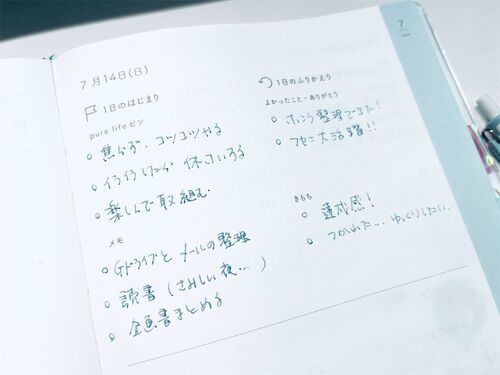 7月14日(日)
1日のはじまり
pure lifeピン
焦らず、コツコツやる
イライラしたら 休けいする
楽しんで取組む
メモ
Gドライブと メールの整理
読書 (さみしい夜… )
企画書まとめる
7
1日のふりかえり
よかったこと・ありがとう
整理できた!
フセン大活躍!!
きもち
達成感!
つかれた… ゆっくりしたい…